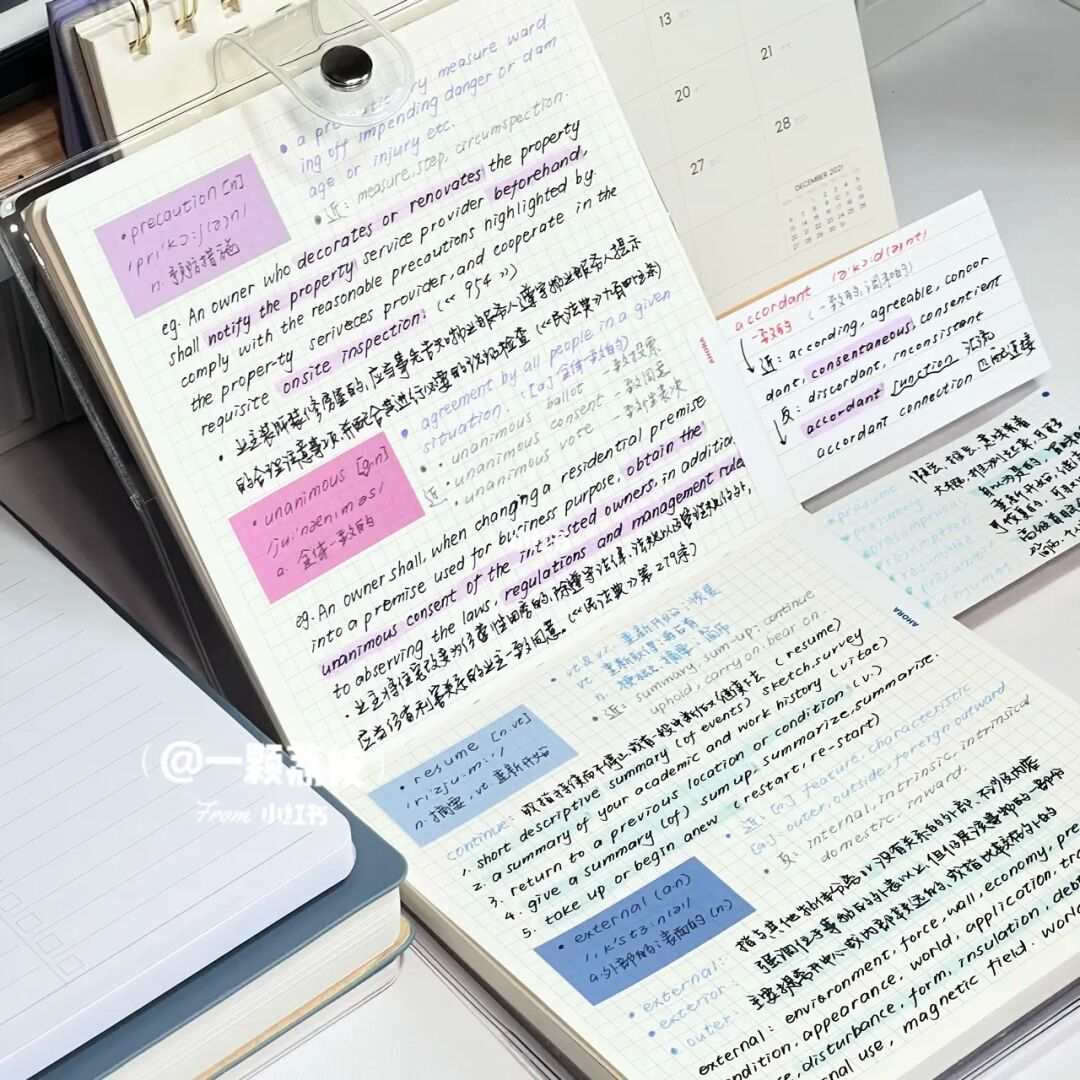 13
21
20
28
27
DECEMBER 2021
• a pre ry measure ward
ing off impending danger or dam
age or injury etc.
• 近: measure, step, circumspection.
• precaution [n]
/pri'kɔ:ʃ(ə)n/
n. 预防措施
eg. An owner who decorates or renovates the property
shall notify the property service provider beforehand,
comply with the reasonable precautions highlighted by
the proper-ty seriveces provider, and cooperate in the
requisite onsite inspection. (<< 954 >>)
• 业主装饰装修房屋的,应当事先告知物业服务人,遵守物业服务人提示
的合理注意事项,并配合其进行必要的现场检查
• agreement by all people in a given
situation. [a] 全体一致的)
• unanimous ballot 一致投票
近: • unanimous consent 一致同意
• unanimous vote 一致性表决
• unanimous [a.n]
/ju'nænɪməs/
a. 全体一致的
eg. An owner shall, when changing a residential premise
into a premise used for business purpose, obtain the
unanimous consent of the intersisted owners, in addition
to observing the laws, regulations and management rule
• 业主将住宅改变为经营性用房的,除遵守法律、法规以及管理规约外,
应当经有利害关系的业主一致同意。(<<民法典>>第279条)
accordant /ə'kɔ:d(ə)nt/
一致的 (一致的,调和的)
近: according, agreeable, concor
dant, consentaneous, consentient
反: discordant, inconsistent
accordant junction 汇流
accordant connection 匹配连接
presume
presumely
presumptuous
presumption
presumable
presumit
resumes
AHORA
AHORA
• vt & vi. 重新开始,恢复
vt 重新取得,再占有
n. 梗概,摘要,简历
• 近: summary, sum-up, continue
uphold, carry on, bear on
• resume [n.vt]
/ri'zju:m:/
n. 摘要, vt. 重新开始
continue: 或指持续而不停止,或有一段中断后又继续下去 (resume)
1. short descriptive summary (of events) sketch, survey
2. a summary of your academic and work history (vitae)
3. return to a previous location or condition (v.)
4. give a summary (of) sum up, summarize, summarise.
5. take up or begin anew (restart, re-start)
• 近: [n.] feature, characteristic
[a]: outer, outside, foreign, outward
• 反: internal, intrinsic, intrinsical
domestic, inward.
• external (a.n)
a.外部的;表面的(n)
• external: 指与其他物体分离以没有关系的外部,不涉及内容
• exterior: 强调位于事物的外表以上,但仍是该事物的一部分
• outer: 主要指离开中心或内部较远的,或指比较在外的
external: environment, force, wall, economy, pre
condition, appearance, world, application, tra
ce, disturbance, form, insulation, deb
nal use, magnetic field. world
@一颗荔枝
From 小红书